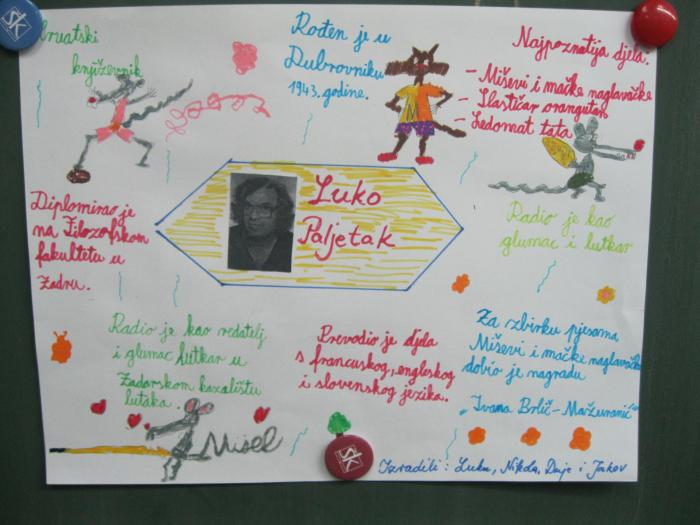 Hrvatski
književnik
Rođen je u
Dubrovniku
1943. godine.
Najpoznatija djela:
- Miševi i mačke naglavačke
- Slastičar orangutan
- Ledomat tata
Luko
Paljetak
Diplomirao je
na Filozofskom
fakultetu u
Zadru.
Radio je kao
glumac i lutkar
Radio je kao redatelj
i glumac lutkar u
Zadarskom kazalištu
lutaka.
Prevodio je djela
s francuskog, engleskog
i slovenskog jezika.
Za zbirku pjesama
Miševi i mačke naglavačke
dobio je nagradu
"Ivana Brlić-Mažuranić"
Mišel
Izradili: Luka, Nikola, Duje i Jakov
ŠK
ŠK